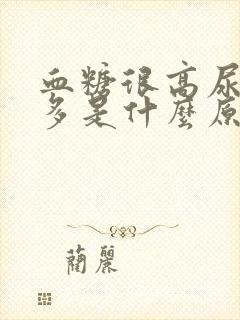 血糖很高尿
多是什麼原
蘭麗